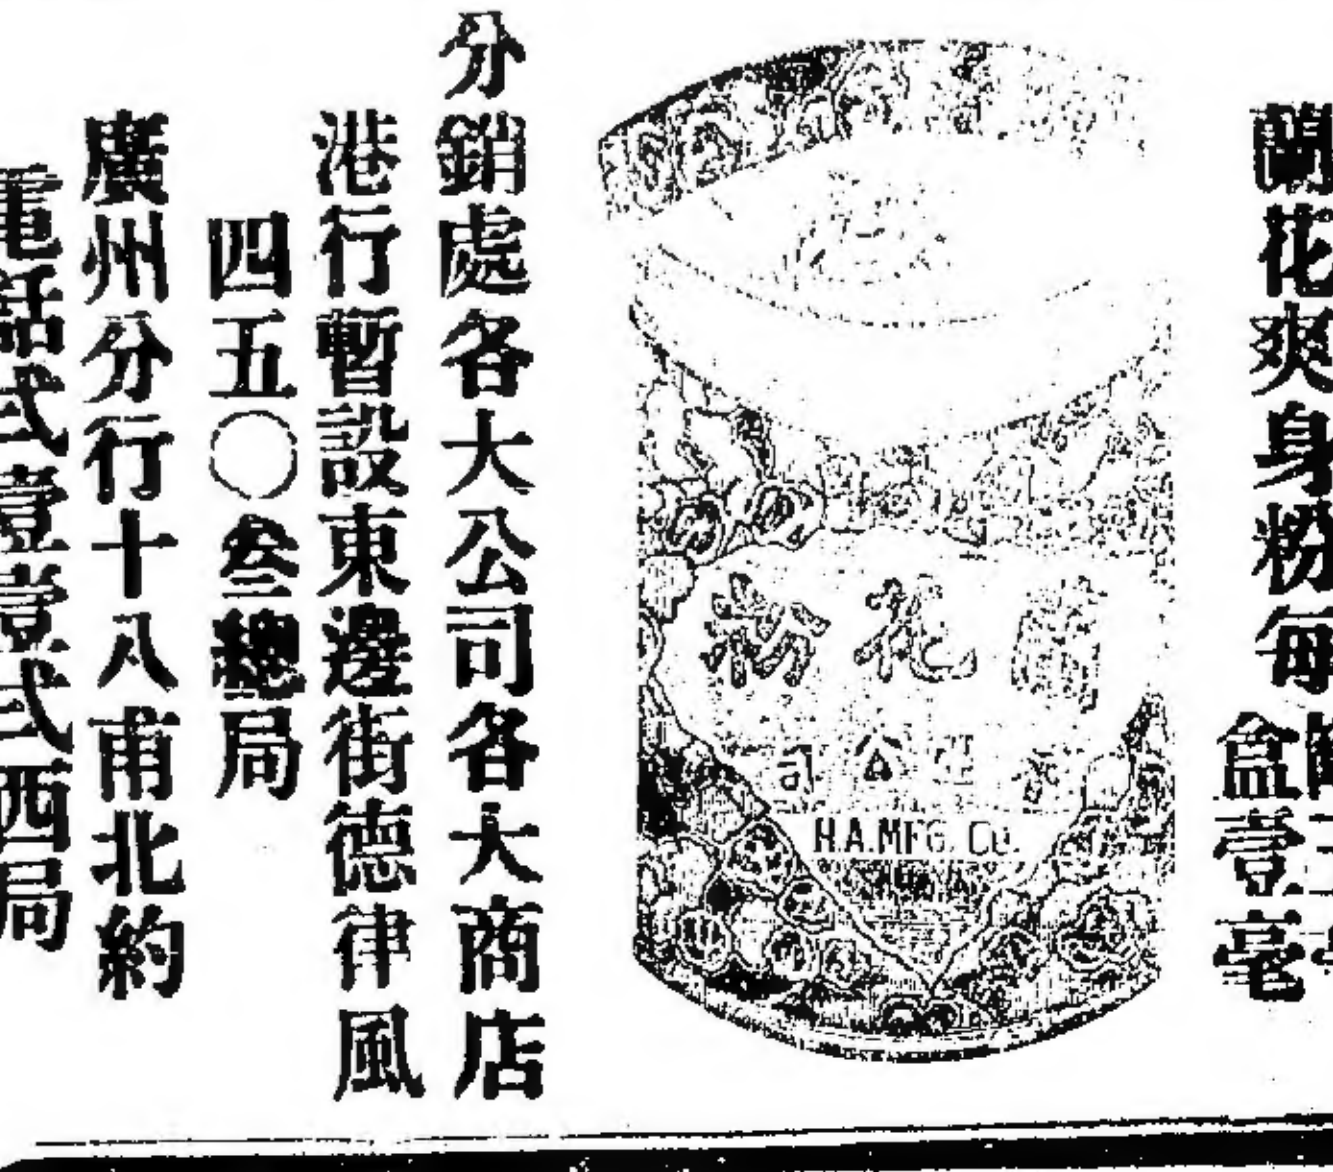 蘭花爽身粉每
盒壹毫
蘭花粉
香亞公司
H.A.MFG. Co.
分銷處各大公司各大商店
港行暫設東邊街德律風
四五〇叁總局
廣州分行十八甫北約
電話弍壹壹弍西局